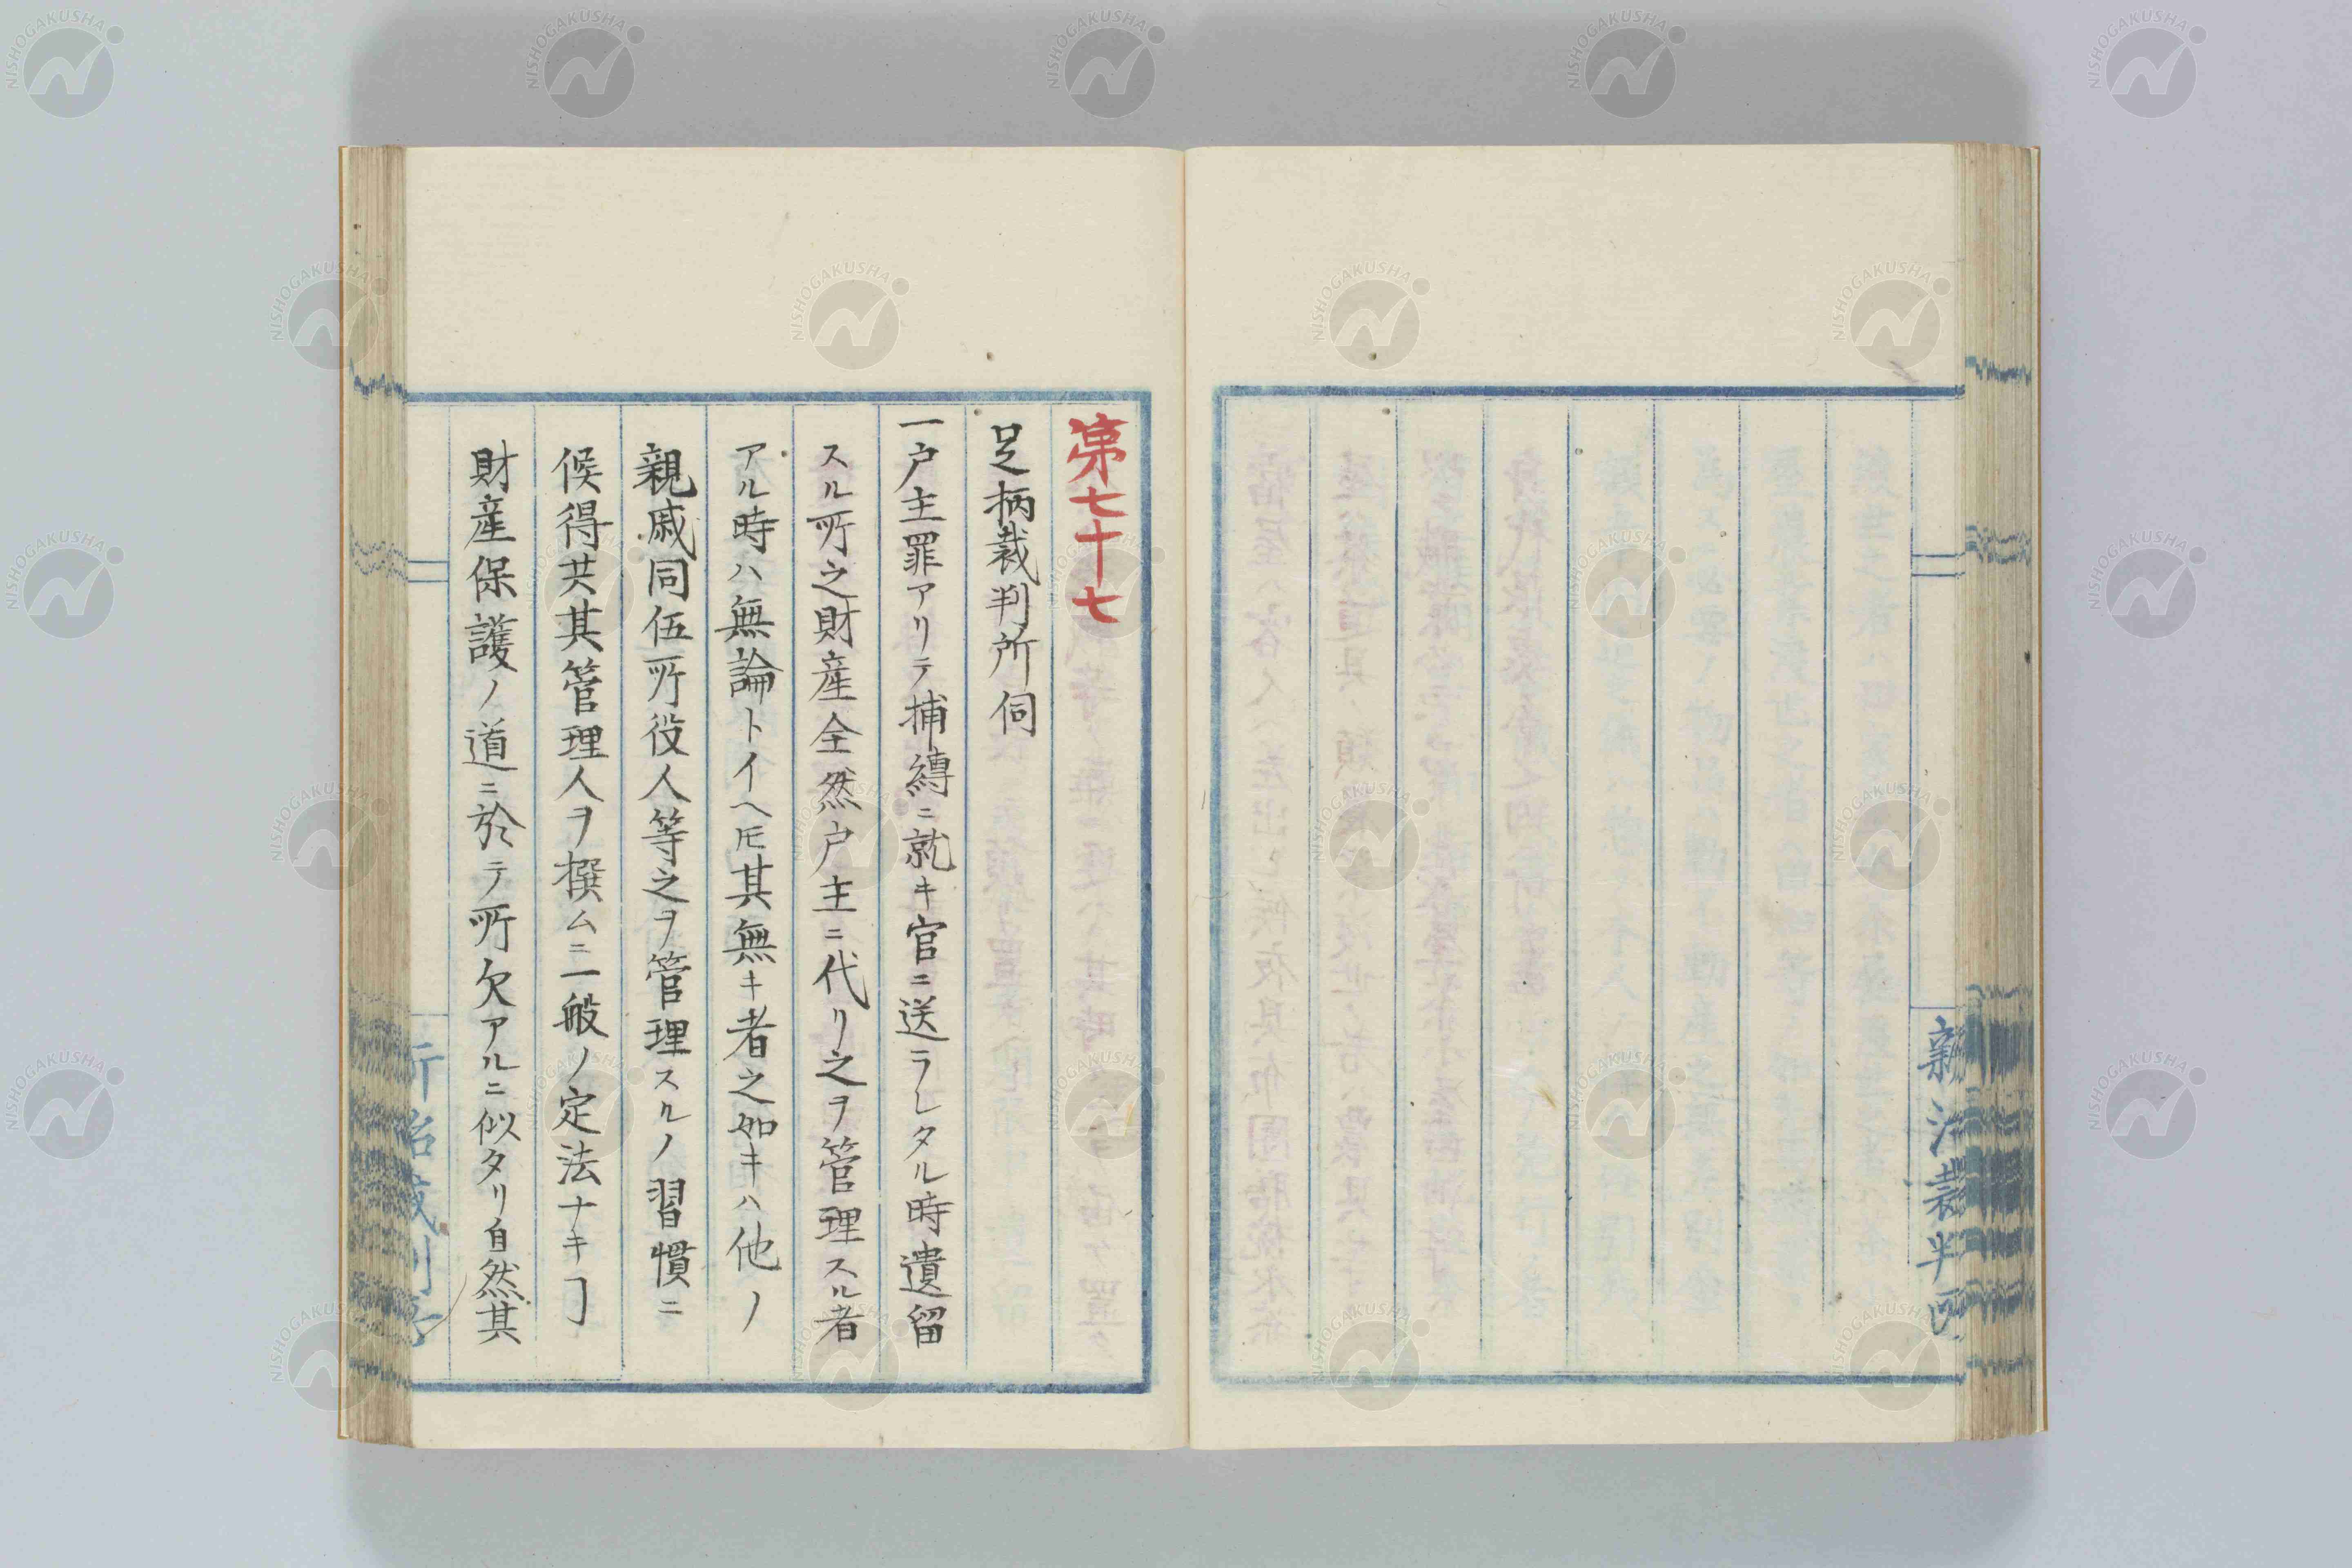 第七十七
足柄裁判所伺
一戸主罪アリテ捕縳ニ就キ官ニ送ラレタル時遺留
スル所之財産全然戸主ニ代リ之ヲ管理スル者
アル時ハ無論トイヘ𪜈其無キ者之如キハ他ノ
親戚同伍所役人等之ヲ管理スルノ習慣ニ
候得共其管理人ヲ撰ムニ一般ノ定法ナキヿ
財産保護ノ道ニ於テ所欠アルニ似タリ自然其
NISHOGAKUSHA